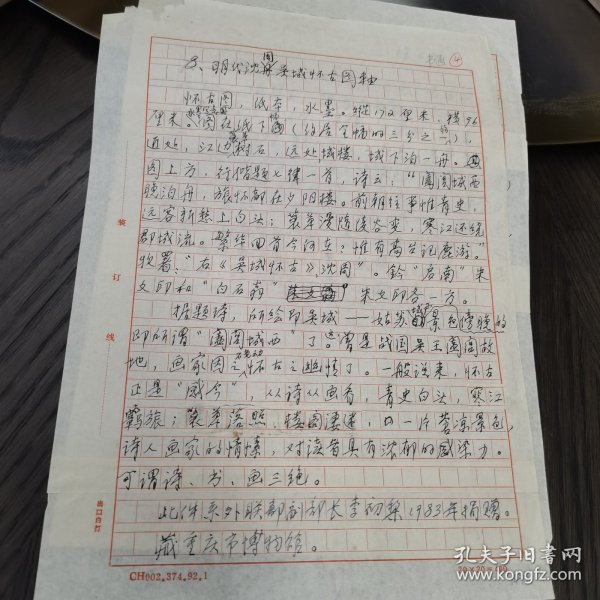 书画 ④
3、明代沈周吴城怀古图轴
怀古图，纸本，水墨。纵172厘米，横96
厘米。图在纸下（约居全幅的三分之），
近处，江边树石，远处城楼，城下泊一舟。
图上方，行楷题七律一首，诗云："阖闾城西
晚泊舟，旅怀都在夕阳楼。前朝往事惟青史，
远客新愁上白头；衰草漫随陵谷变，寒江还绕
郡城流。繁华回首今何在？惟有高台记鹿游。"
收署："右《吴城怀古》沈周"。钤"启南"朱
文印和"白石翁"朱文印各一方。
据题诗，所绘即吴城——姑苏的景和傍晚的
即所谓"阖闾城西"了。曾是战国吴王阖闾故
地，画家因之怀古之幽情了。一般说来，怀古
正是"感今"，从诗从画看，青史白头，寒江
羁旅；衰草落照，楼阁凄迷，一片苍凉景色，
诗人画家的情愫，对读者具有浓郁的感染力。
可谓诗、书、画三绝。
此件系外联部副部长李初梨1983年捐赠。
藏重庆市博物馆。
装
订
线
出口白打
CH002.374.92.1
20×20=400
孔夫子旧书网
www.kongfz.com